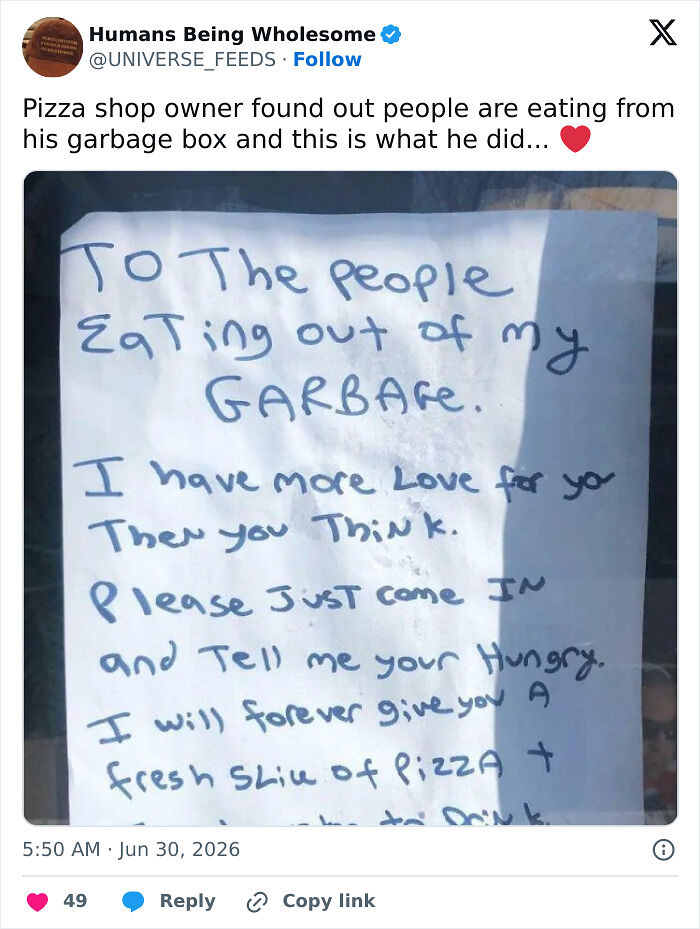 Humans Being Wholesome
@UNIVERSE_FEEDS · Follow
Pizza shop owner found out people are eating from
his garbage box and this is what he did... ❤️
To The people
EaTing out of my
GARBAGe.
I have more Love for yo
Then you Think.
Please JusT come IN
and Tell me your Hungry.
I will forever give you A
fresh SLice of PizzA +
to Drink.
5:50 AM · Jun 30, 2026
49 Reply Copy link